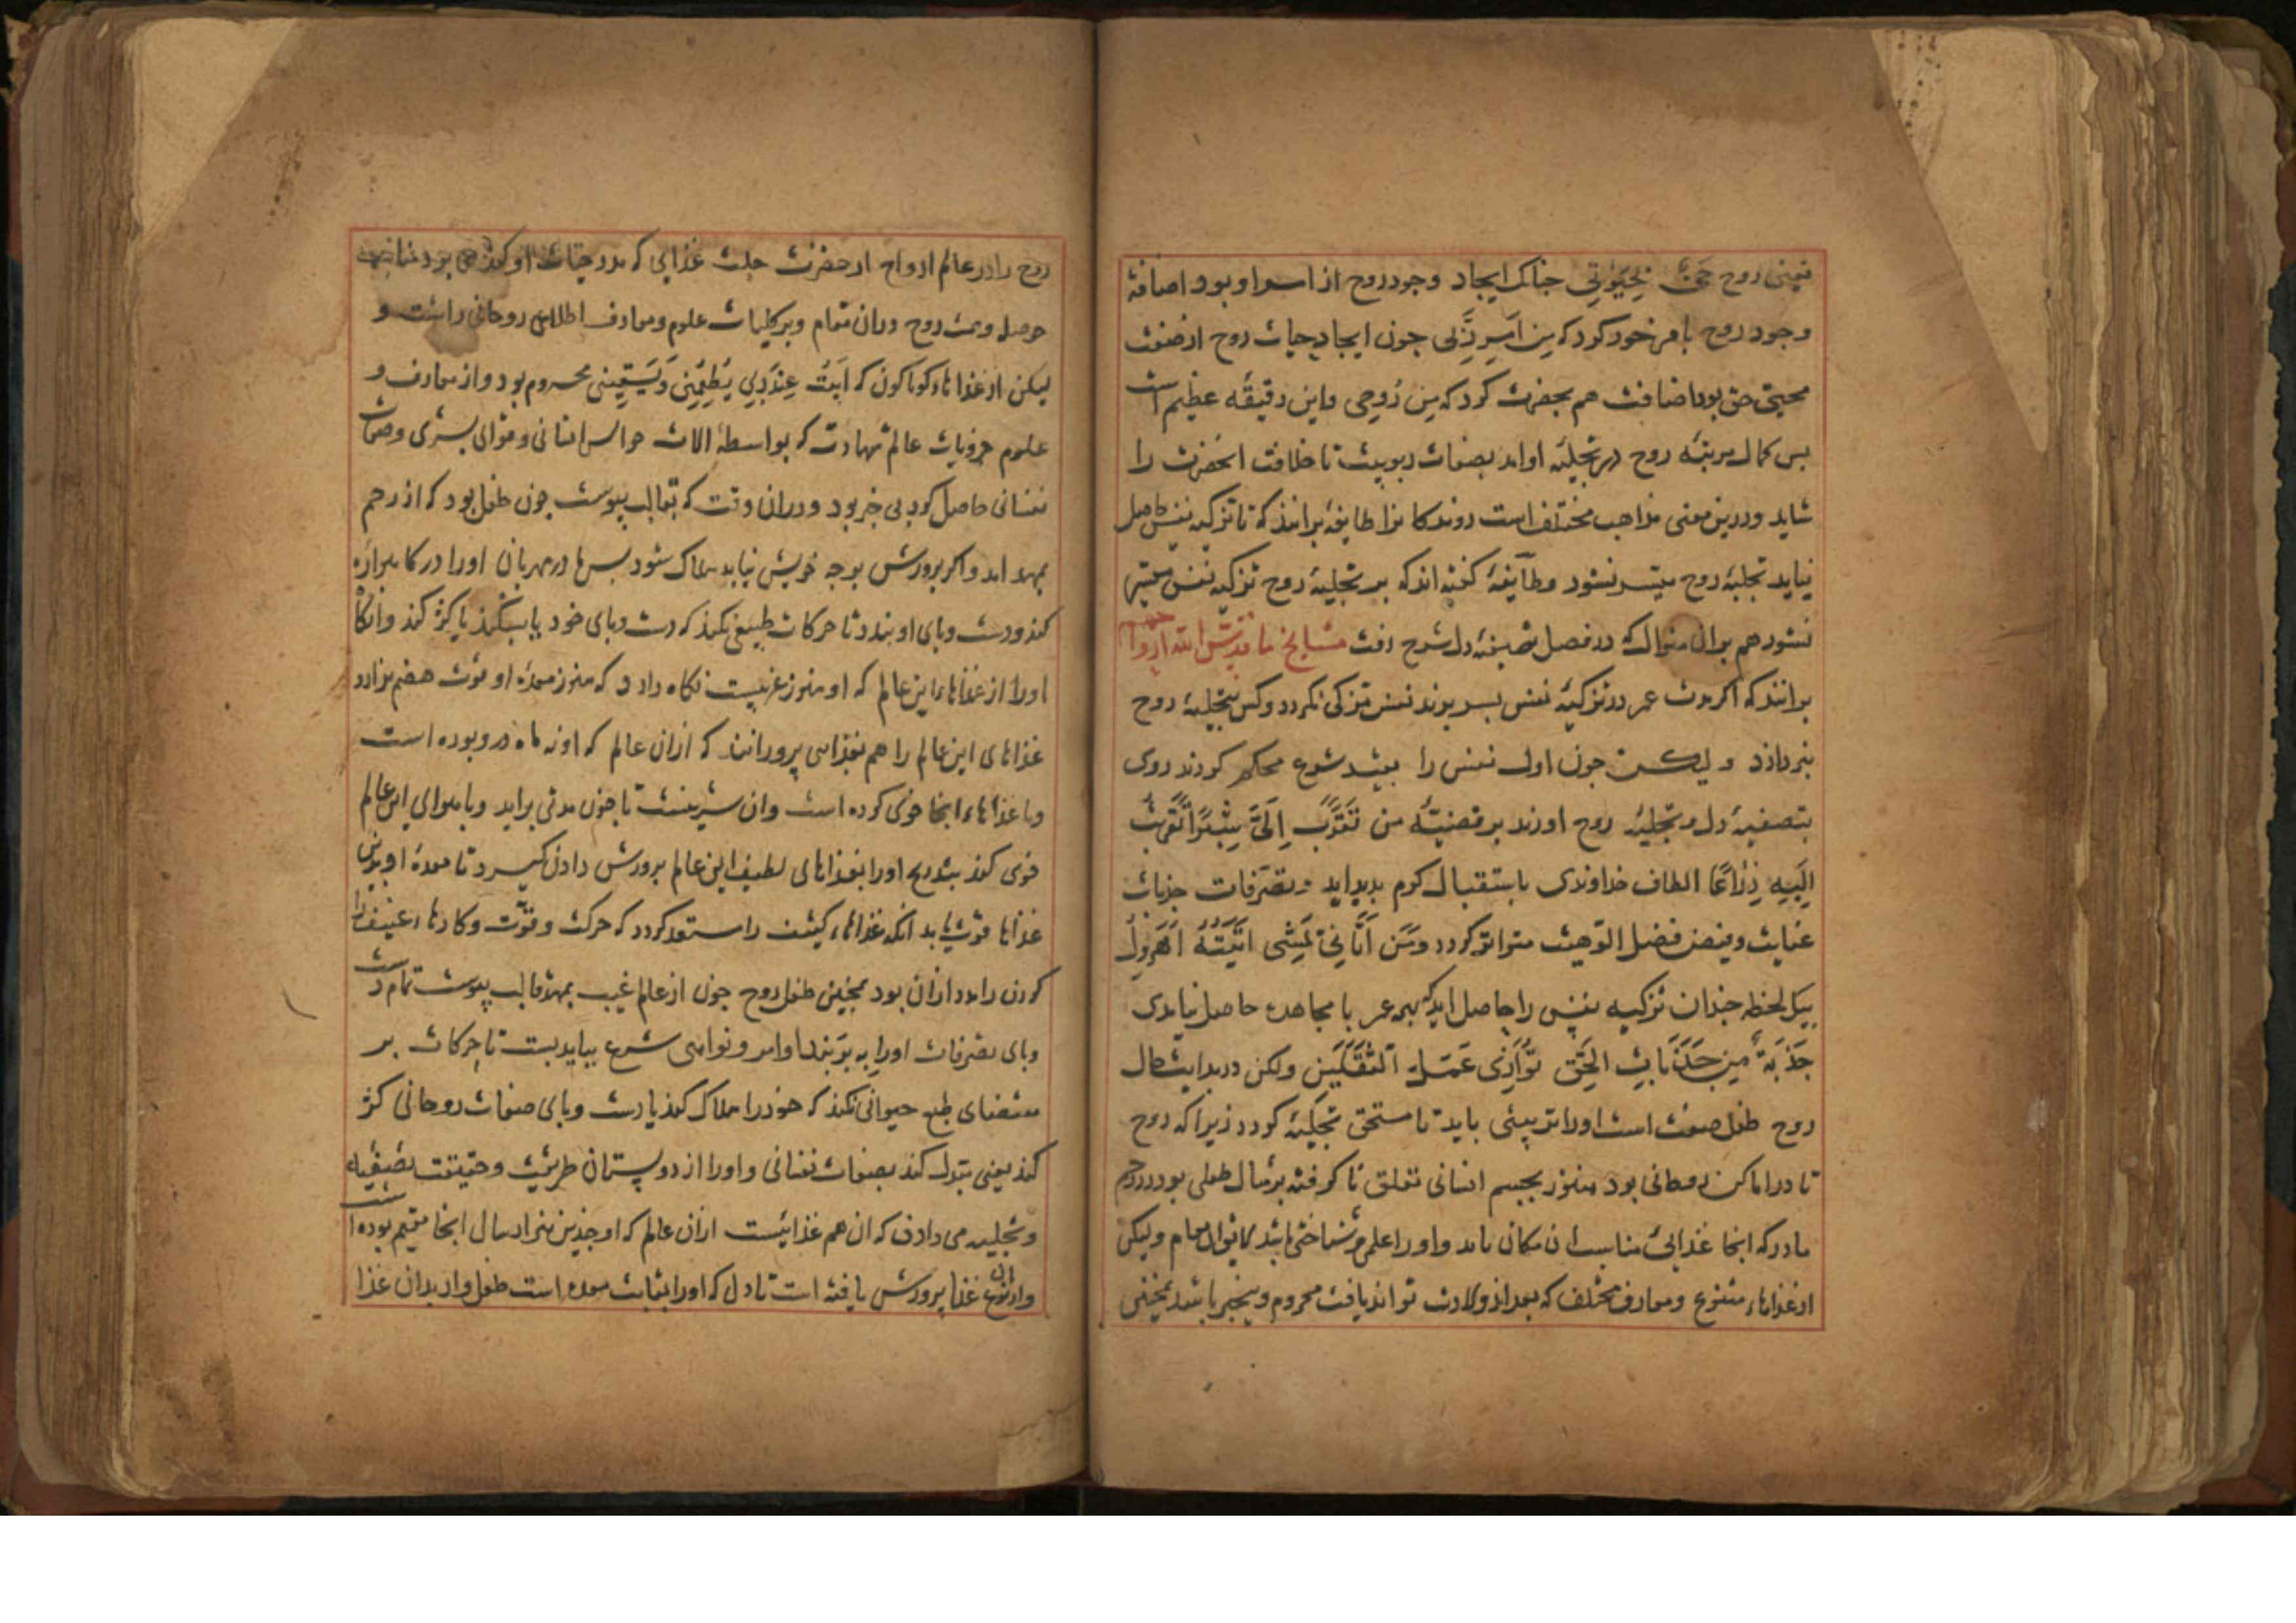 یعنی روح حی بحیوتی جنانک ایجاد وجود روح از اسرا و بود اضافهٔ
وجود روح با مر خود کود که من امر رَبّی جون ایجاد حیات روح از صفت
محیی حق بود اضافت هم بحضرت کرد که من رُوحی واین دقیقه عظیم است
بس کمال مرتبهٔ روح در تجلیهٔ او امد بصفات ربوبیت تا خلافت انحضرت را
شاید و درین معنی مذاهب مختلف است روندکانرا طایفهٔ برانند که تا تزکیه نفس حاصل
نیاید تجلیهٔ روح میسر نشود وطآیفهٔ کفته اند که بر تجلیهٔ روح تزکیه نفس میسر
نشود هم بران منوال که در فصل تصفیهٔ دل شرح رفت مشایخ ما قدس الله ارواحهم
برانند که اکر مدت عمر در تزکیهٔ نفس بسر برند نفس مزکی نکردد وکس بتجلیهٔ روح
نپردازد ولیکن جون اول نفس را بقید شرع محکم کردند روی
بتصفیهٔ دل وتجلیهٔ روح اورند بر قضیّهٔ من تَقَرَّبَ اِلَیَّ شِبْرًا تَقَرَّبْتُ
اِلَیهِ ذِرَاعًا الطاف خداوندی باستقبال کرم بدید اید وتصرفات جذبات
عنایت وفیض فضل الوهیت متواتر کردد وَمَن اَتَانِی یَمشِی اَتَیتُهُ اُهَروِلُ
بیک لحظه جندان تزکیه نفس را حاصل اید که بهمه عمر با مجاهده حاصل نیامدی
جَذبَةٌ مِن جَذَبَاتِ الحَقِ تُوَازِی عَمَلَ الثَّقَلَینِ ولکن در بدایت حال
روح طفل صفت است اورا تربیتی باید تا مستحق تجلیهٔ کردد زیرا که روح
تا در اماکن روحانی بود هنوز بجسم انسانی تعلق نا کرفته بر مثال طفلی بود در رحم
مادر که انجا غذائی مناسب ان مکان یابد واورا علمی وشناختی باشد لایق ان مقام ولیکن
از غذاهاء متنوع ومعارف مختلف که بعد از ولادت تواند یافت محروم وبیخبر باشد همچنین
روح را در عالم ارواح از حضرت جلت غذایی که مدد حیات او کند می بود مناسب
حوصله وهمت روح دران مقام وبر کلیات علوم ومعارف اطلاع روحانی داشت و
لیکن از غذاهاء کوناکون که اَبِیتُ عِندَ رَبِی یُطعِمُنِی وَیَسقِینِی محروم بود واز معارف و
علوم جزویات عالم شهادت که بواسطهٔ الات حواس انسانی وقوای بشری وصفات
نفسانی حاصل کرد بی خبر بود ودران وقت که بقالب پیوست جون طفل بود که از رحم
بمهد امد واکر برورش بوجه خویش نیابد هلاک شود بس مادر مهربان اورا در کاهواره
کند ودست وبای او بندد تا حرکات طبیعی نکند که دست وبای خود یا بشکند یا کژ کند وانکاه
اورا از غذاهاء این عالم که او هنوز غریبست نکاه دارد که هنوز معدهٔ او قوت هضم ندارد
غذاهای این عالم را هم بغذایی پرورانند که ازان عالم که او نه ماه درو بوده است
وبا غذاهاء انجا خوی کرده است وان شیرینست تا جون مدتی براید وبا هوای این عالم
خوی کند بتدریج اورا بغذاهای لطیف این عالم برورش دادن کیرد تا معدهٔ او بدین
غذاها قوت یابد انکه غذاهاء کثیف را مستعد کردد که حرکت وقوّت وکارهاء عنیف
کردن را مدد ازان بود همچنین طفل روح جون از عالم غیب بمهد قالب پیوست تمام دست
وبای تصرفات اورا به بربند اوامر ونواهی شرع بباید بست تا حرکات بر
مقتضای طبع حیوانی نکند که خود را هلاک کند یا دست وبای صفات روحانی کژ
کند یعنی متبدل کند بصفات نفسانی واورا از دو پستان طریقت وحقیقت تصفیهٔ
وتجلیه می دادن که ان هم غذائیست ازان عالم که او جندین هزار سال انجا مقیم بوده است
وازان نوع غذا پرورش یافته است تا دل که اورا بمثابت معده است طفل وار بدان غذا